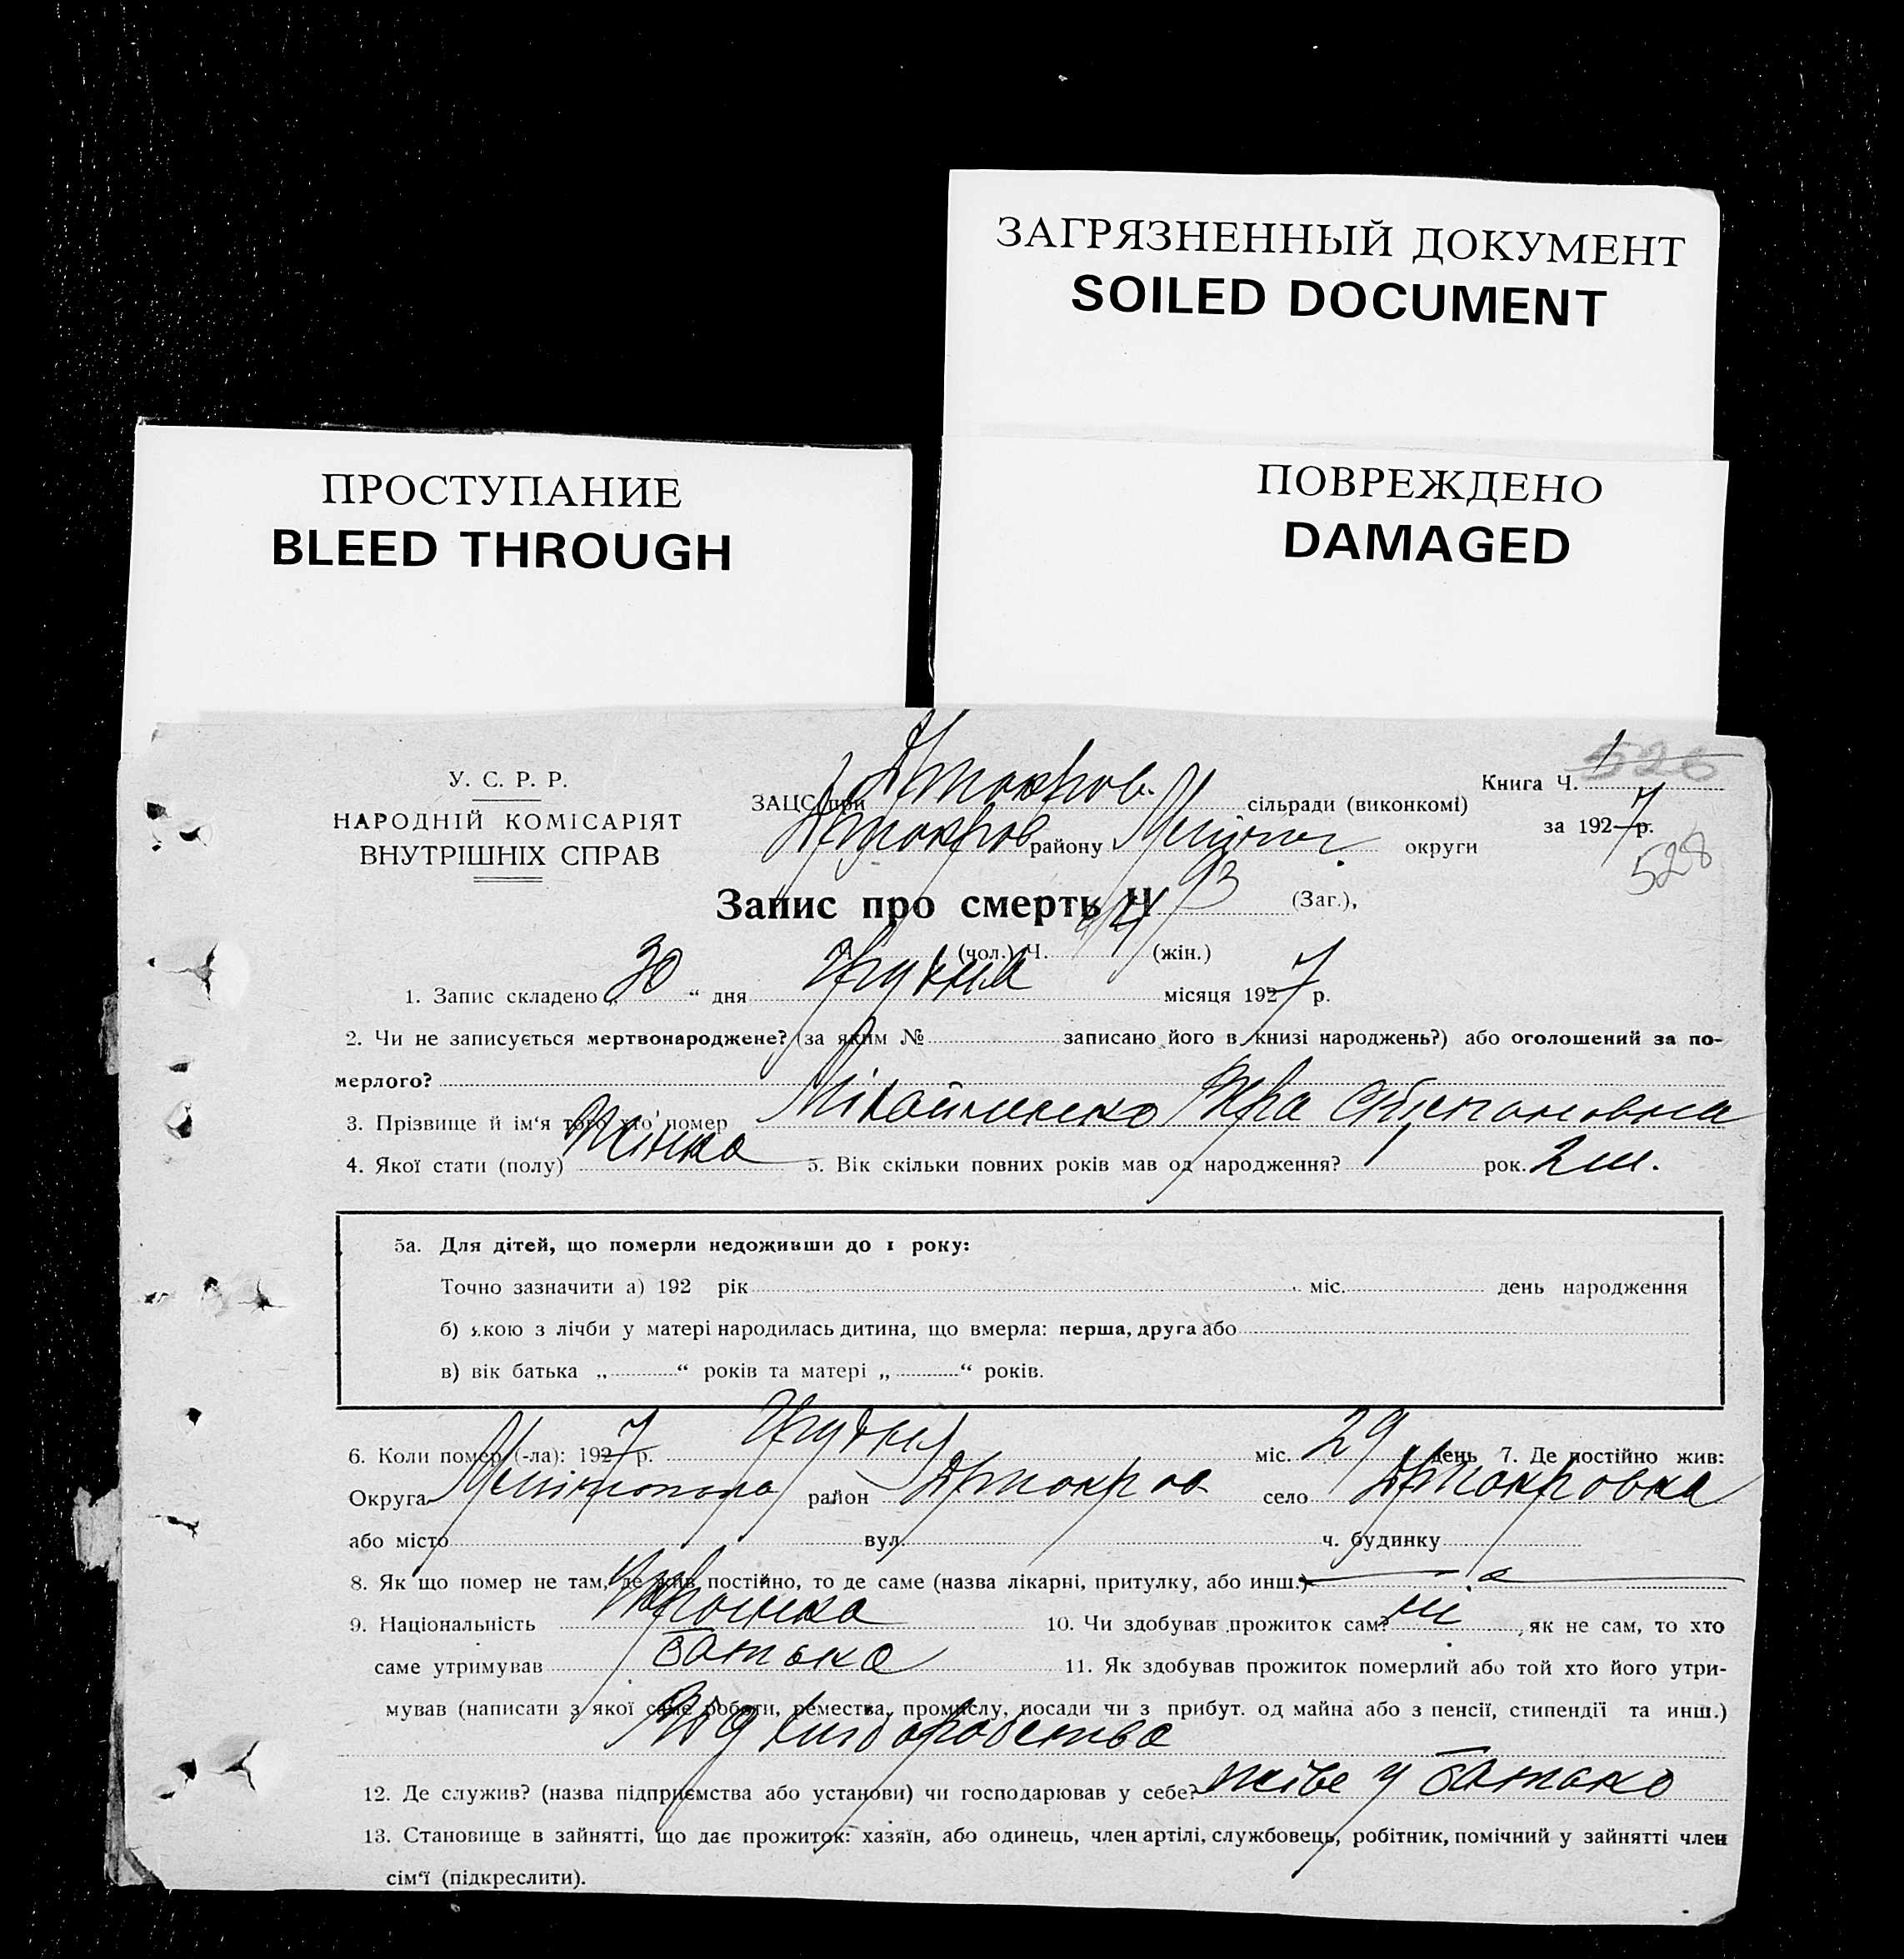 ЗАГРЯЗНЕННЫЙ ДОКУМЕНТ
SOILED DOCUMENT
ПРОСТУПАНИЕ
BLEED THROUGH
ПОВРЕЖДЕНО
DAMAGED
У. С. Р. Р.
НАРОДНІЙ КОМІСАРІЯТ
ВНУТРІШНІХ СПРАВ
ЗАЦС при сільради (виконкомі)
району округи
Книга Ч. 1 526
за 1927 р.
528
Запис про смерть Ч 93 (Заг.),
(чол.) Ч. 44 (жін.)
1. Запис складено „ 30 “ дня Грудня місяця 1927 р.
2. Чи не записується мертвонароджене? (за яким № записано його в книзі народжень?) або оголошений за по-
мерлого?
3. Прізвище й ім‘я того хто помер Степановна
4. Якої стати (полу) Жінка 5. Вік скільки повних років мав од народження? 1 рок. 2 м.
5а. Для дітей, що померли недоживши до 1 року:
Точно зазначити а) 192 рік міс. день народження
б) якою з лічби у матері народилась дитина, що вмерла: перша, друга або
в) вік батька „ “ років та матері „ “ років.
6. Коли помер (-ла): 1927 р. Грудня міс. 29 день 7. Де постійно жив:
Округа район село
або місто вул. ч. будинку
8. Як що помер не там, де жив постійно, то де саме (назва лікарні, притулку, або инш.)
9. Національність Українка 10. Чи здобував прожиток сам? ні , як не сам, то хто
саме утримував батько 11. Як здобував прожиток померлий або той хто його утри-
мував (написати з якої саме роботи, ремества, промислу, посади чи з прибут. од майна або з пенсії, стипендії та инш.)
Від хліборобства
12. Де служив? (назва підприємства або установи) чи господарював у себе? жіве у батька
13. Становище в зайнятті, що дає прожиток: хазяїн, або одинець, член артілі, службовець, робітник, помічний у зайнятті член
сім‘ї (підкреслити).